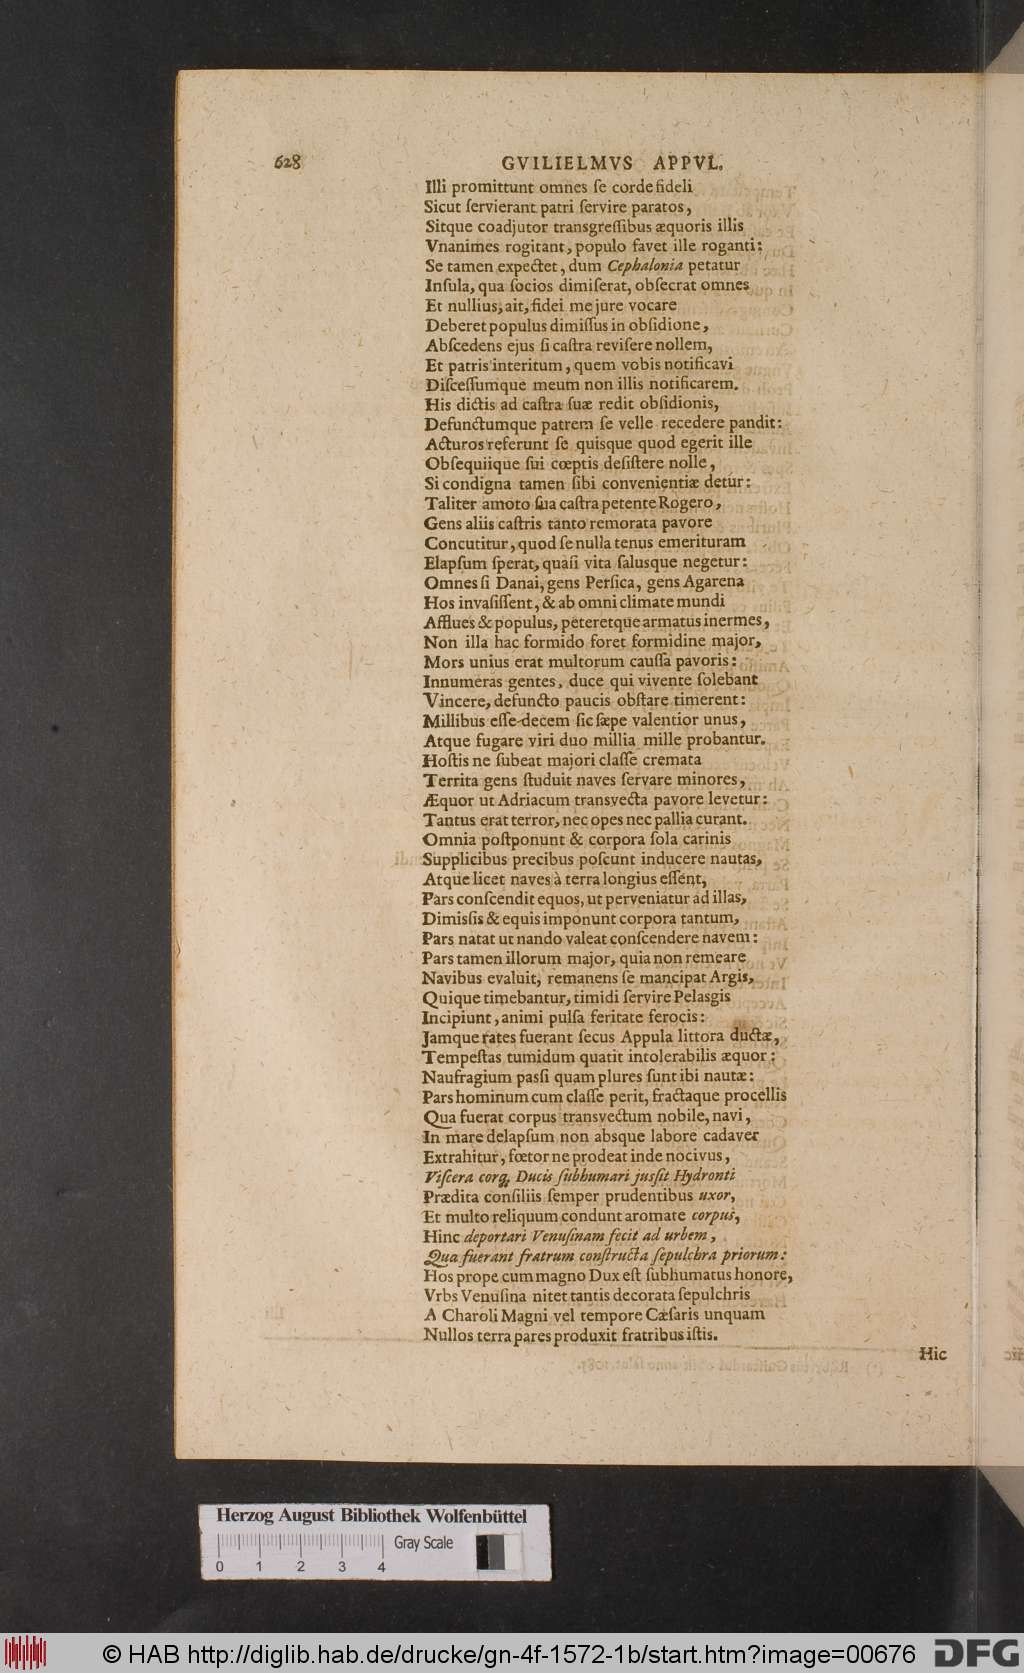 628 GVILIELMVS APPVL.
Illi promittunt omnes ſe corde fideli
Sicut ſervierant patri ſervire paratos,
Sitque coadjutor transgreſſibus æquoris illis
Vnanimes rogitant, populo favet ille roganti:
Se tamen expectet, dum Cephalonia petatur
Inſula, qua ſocios dimiſerat, obſecrat omnes
Et nullius, ait, fidei me jure vocare
Deberet populus dimiſſus in obſidione,
Abſcedens ejus ſi caſtra reviſere nollem,
Et patris interitum, quem vobis notificavi
Diſceſſumque meum non illis notificarem.
His dictis ad caſtra ſuæ redit obſidionis,
Defunctumque patrem ſe velle recedere pandit:
Acturos referunt ſe quisque quod egerit ille
Obſequiique ſui cœptis deſiſtere nolle,
Si condigna tamen ſibi convenientiæ detur:
Taliter amoto ſua caſtra petente Rogero,
Gens aliis caſtris tanto remorata pavore
Concutitur, quod ſe nulla tenus emerituram
Elapſum ſperat, quaſi vita ſalusque negetur:
Omnes ſi Danai, gens Perſica, gens Agarena
Hos invaſiſſent, & ab omni climate mundi
Afflues & populus, peteretque armatus inermes,
Non illa hac formido foret formidine major,
Mors unius erat multorum cauſſa pavoris:
Innumeras gentes, duce qui vivente ſolebant
Vincere, defuncto paucis obſtare timerent:
Millibus eſſe decem ſic ſæpe valentior unus,
Atque fugare viri duo millia mille probantur.
Hoſtis ne ſubeat majori claſſe cremata
Territa gens ſtuduit naves ſervare minores,
Æquor ut Adriacum transvecta pavore levetur:
Tantus erat terror, nec opes nec pallia curant.
Omnia poſtponunt & corpora ſola carinis
Supplicibus precibus poſcunt inducere nautas,
Atque licet naves à terra longius eſſent,
Pars conſcendit equos, ut perveniatur ad illas,
Dimiſsis & equis imponunt corpora tantum,
Pars natat ut nando valeat conſcendere navem:
Pars tamen illorum major, quia non remeare
Navibus evaluit, remanens ſe mancipat Argis,
Quique timebantur, timidi ſervire Pelasgis
Incipiunt, animi pulſa feritate ferocis:
Jamque rates fuerant ſecus Appula littora ductæ,
Tempeſtas tumidum quatit intolerabilis æquor:
Naufragium paſſi quam plures ſunt ibi nautæ:
Pars hominum cum claſſe perit, fractaque procellis
Qua fuerat corpus transvectum nobile, navi,
In mare delapſum non absque labore cadaver
Extrahitur, fœtor ne prodeat inde nocivus,
Viſcera corq; Ducis ſubhumari juſſit Hydronti
Prædita conſiliis ſemper prudentibus uxor,
Et multo reliquum condunt aromate corpus,
Hinc deportari Venuſinam fecit ad urbem,
Qua fuerant fratrum conſtructa ſepulchra priorum:
Hos prope cum magno Dux eſt ſubhumatus honore,
Vrbs Venuſina nitet tantis decorata ſepulchris
A Charoli Magni vel tempore Cæſaris unquam
Nullos terra pares produxit fratribus iſtis.
Hic
Herzog August Bibliothek Wolfenbüttel
Gray Scale
0 1 2 3 4
© HAB http://diglib.hab.de/drucke/gn-4f-1572-1b/start.htm?image=00676 DFG